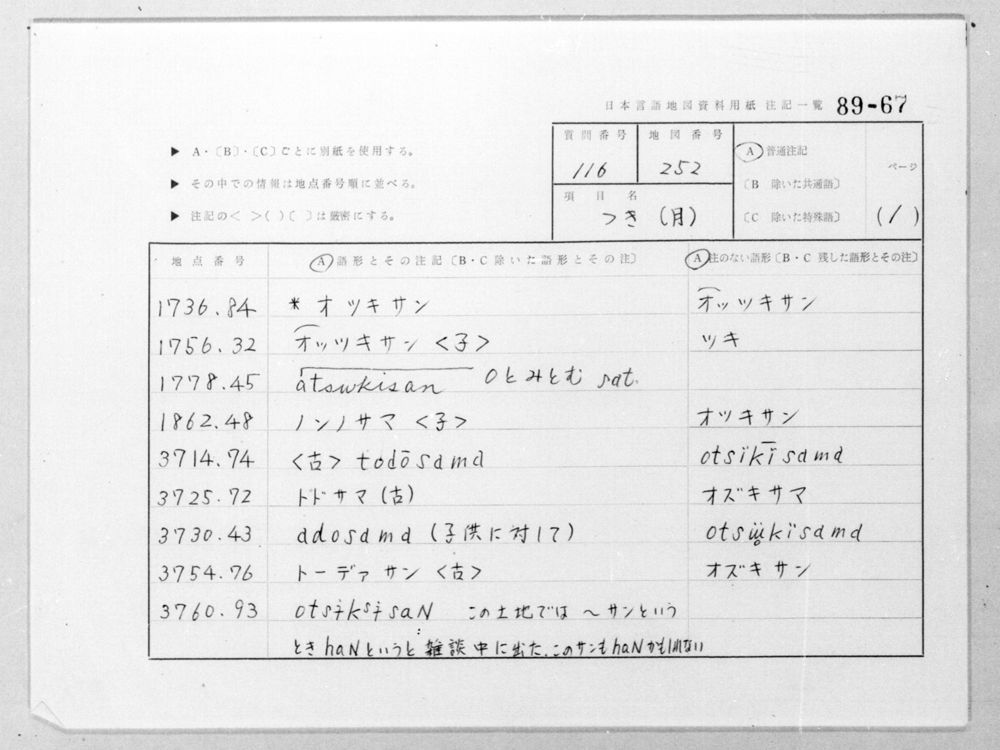 日本言語地図資料用紙 注記一覧 89-67
▶ A・〔B〕・〔C〕ごとに別紙を使用する。
▶ その中での情報は地点番号順に並べる。
▶ 注記の< >( )〔 〕は厳密にする。
質問番号 地図番号
116 252
項目名
つき(月)
A 普通注記
〔B 除いた共通語〕
〔C 除いた特殊語〕
ページ
(1)
地点番号 A 語形とその注記〔B・C除いた語形とその注〕 A 注のない語形〔B・C 残した語形とその注〕
1736.84 * オツキサン オッツキサン
1756.32 オッツキサン <子> ツキ
1778.45 atsukisan Oとみとむ sat.
1862.48 ノンノサマ <子> オツキサン
3714.74 <古> todōsama otsïkīsama
3725.72 トドサマ (古) オズキサマ
3730.43 adosama (子供に対して) otsükïsama
3754.76 トーデァサン <古> オズキサン
3760.93 otsɨksɨsaN この土地では ～サンという
とき haNというと 雑談中に出た.このサンもhaNかも知れない